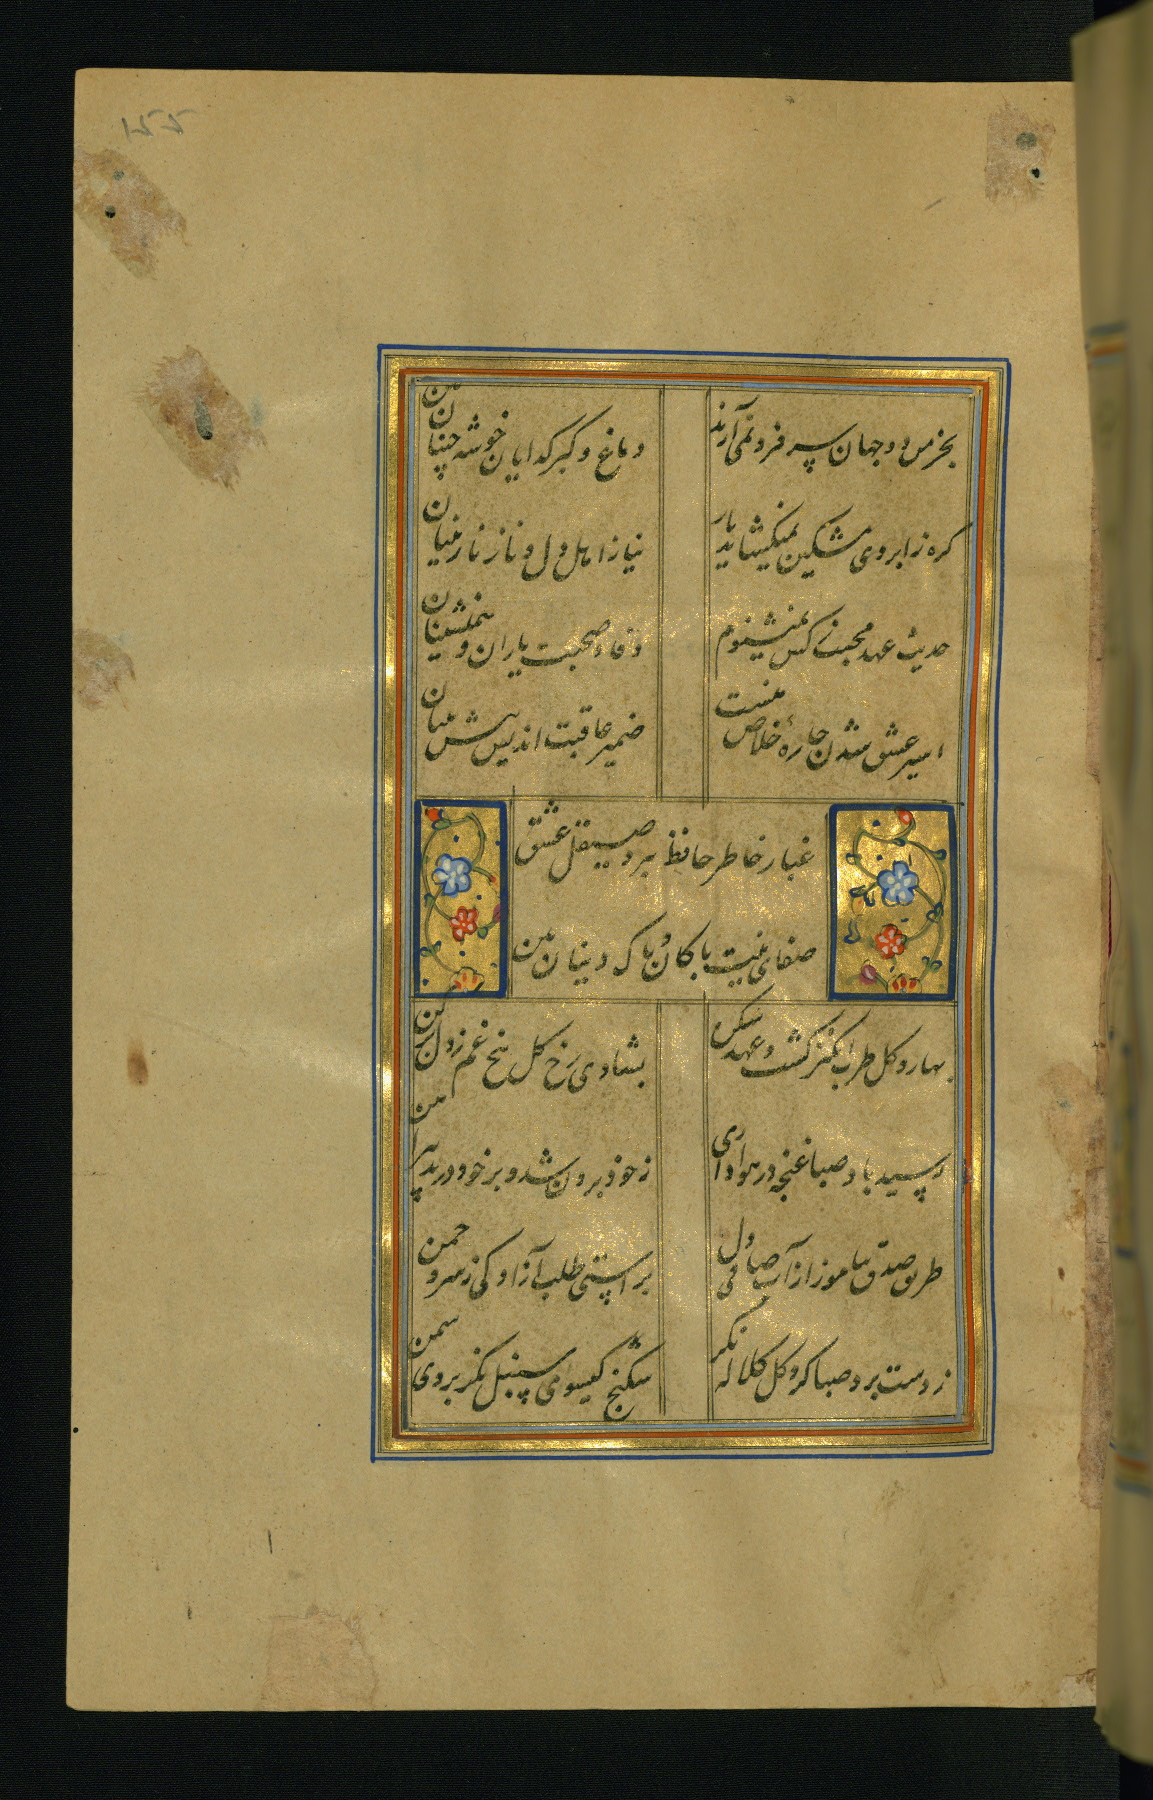 ۱۵۵
بخرمن دو جهان سر فرو نمی آرند
دماغ و کبر کدایان خوشه چینان بین
کره ز ابروی مشکین نمیکشاید یار
نیاز اهل دل و ناز نازنینان بین
حدیث عهد محبت ز کس نمیشنوم
وفاء صحبت یاران و همنشینان بین
اسیر عشق شدن چارهٔ خلاص منست
ضمیر عاقبت اندیش پیش بینان بین
غبار خاطر حافظ ببرد صیقل عشق
صفای نیت پاکان و پاک دینان بین
بهار و کل طرب انکیز کشت و عهد شکن
بشادی رخ کل بیخ غم ز دل برکن
رسید باد صبا غنچه در هواداری
ز خود برون شد و بر خود درید پیراهن
طریق صدق بیاموز از آب صافی دل
براستی طلب آزادکی ز سرو چمن
ز دست برد صبا کرد کل کلاله نکر
شکنج کیسوی سنبل نکر بروی سمن